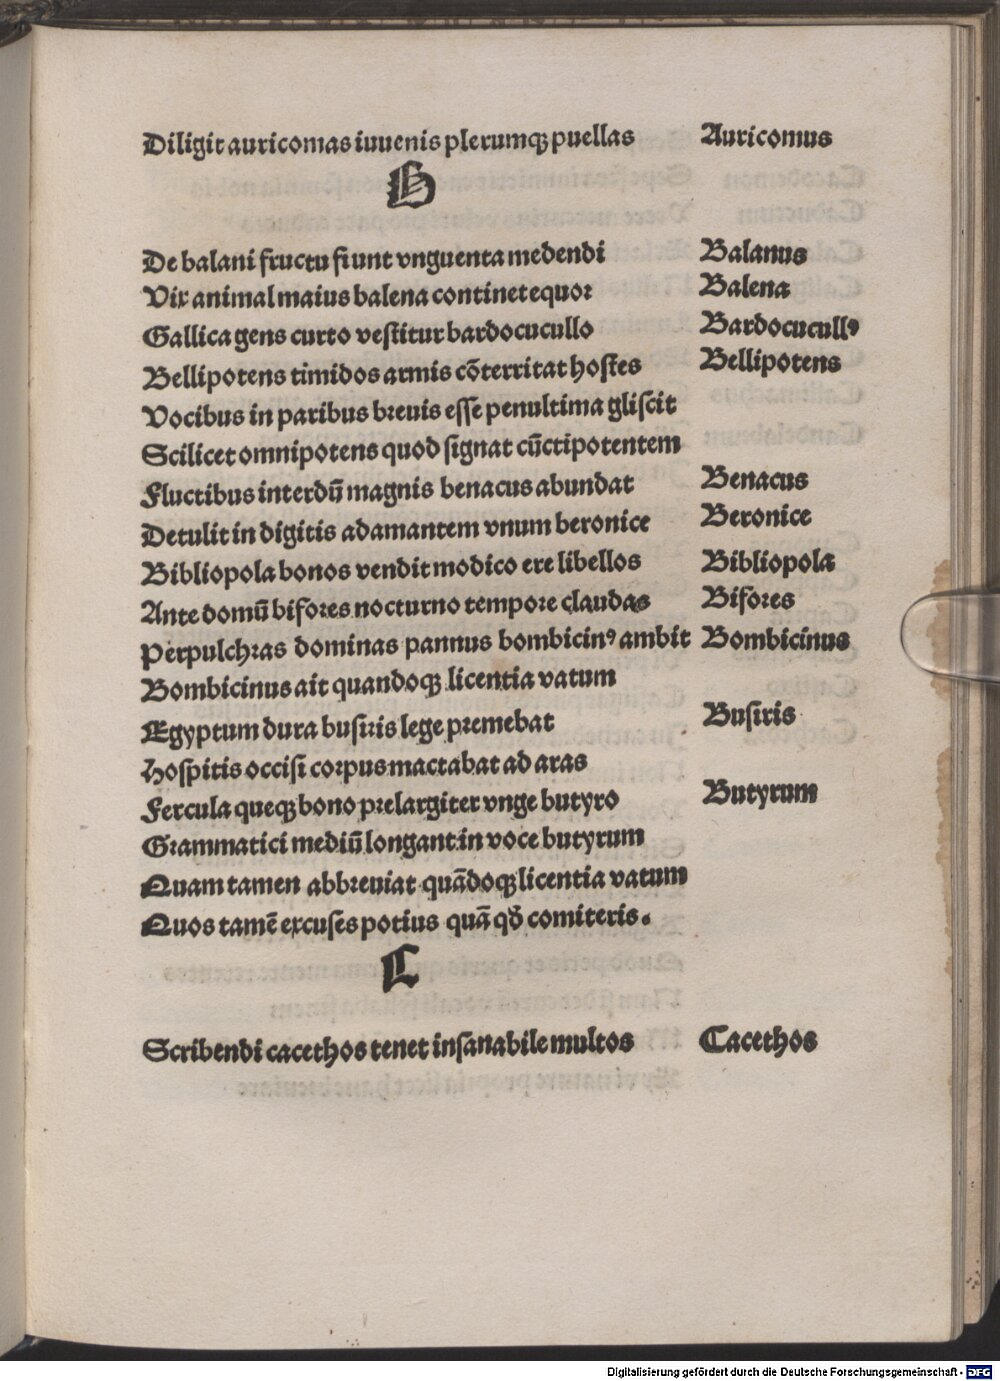 Diligit auricomas iuuenis plerumqꝫ puellas Auricomus
B
De balani fructu fiunt vnguenta medendi Balanus
Vix animal maius balena continet equor Balena
Gallica gens curto vestitur bardocucullo Bardocucullꝰ
Bellipotens timidos armis cõterritat hostes Bellipotens
Vocibus in paribus breuis esse penultima gliscit
Scilicet omnipotens quod signat cũctipotentem
Fluctibus interdũ magnis benacus abundat Benacus
Detulit in digitis adamantem vnum beronice Beronice
Bibliopola bonos vendit modico ere libellos Bibliopola
Ante domũ bifores nocturno tempore claudas Bifores
Perpulchras dominas pannus bombicinꝰ ambit Bombicinus
Bombicinus ait quandoqꝫ licentia vatum
Egyptum dura busiris lege premebat Busiris
Hospitis occisi corpus mactabat ad aras
Fercula queqꝫ bono prelargiter vnge butyro Butyrum
Grammatici mediũ longant in voce butyrum
Quam tamen abbreuiat quãdoqꝫ licentia vatum
Quos tamẽ excuses potius quã qď comiteris.
C
Scribendi cacethos tenet insanabile multos Cacethos
Digitalisierung gefördert durch die Deutsche Forschungsgemeinschaft - DFG